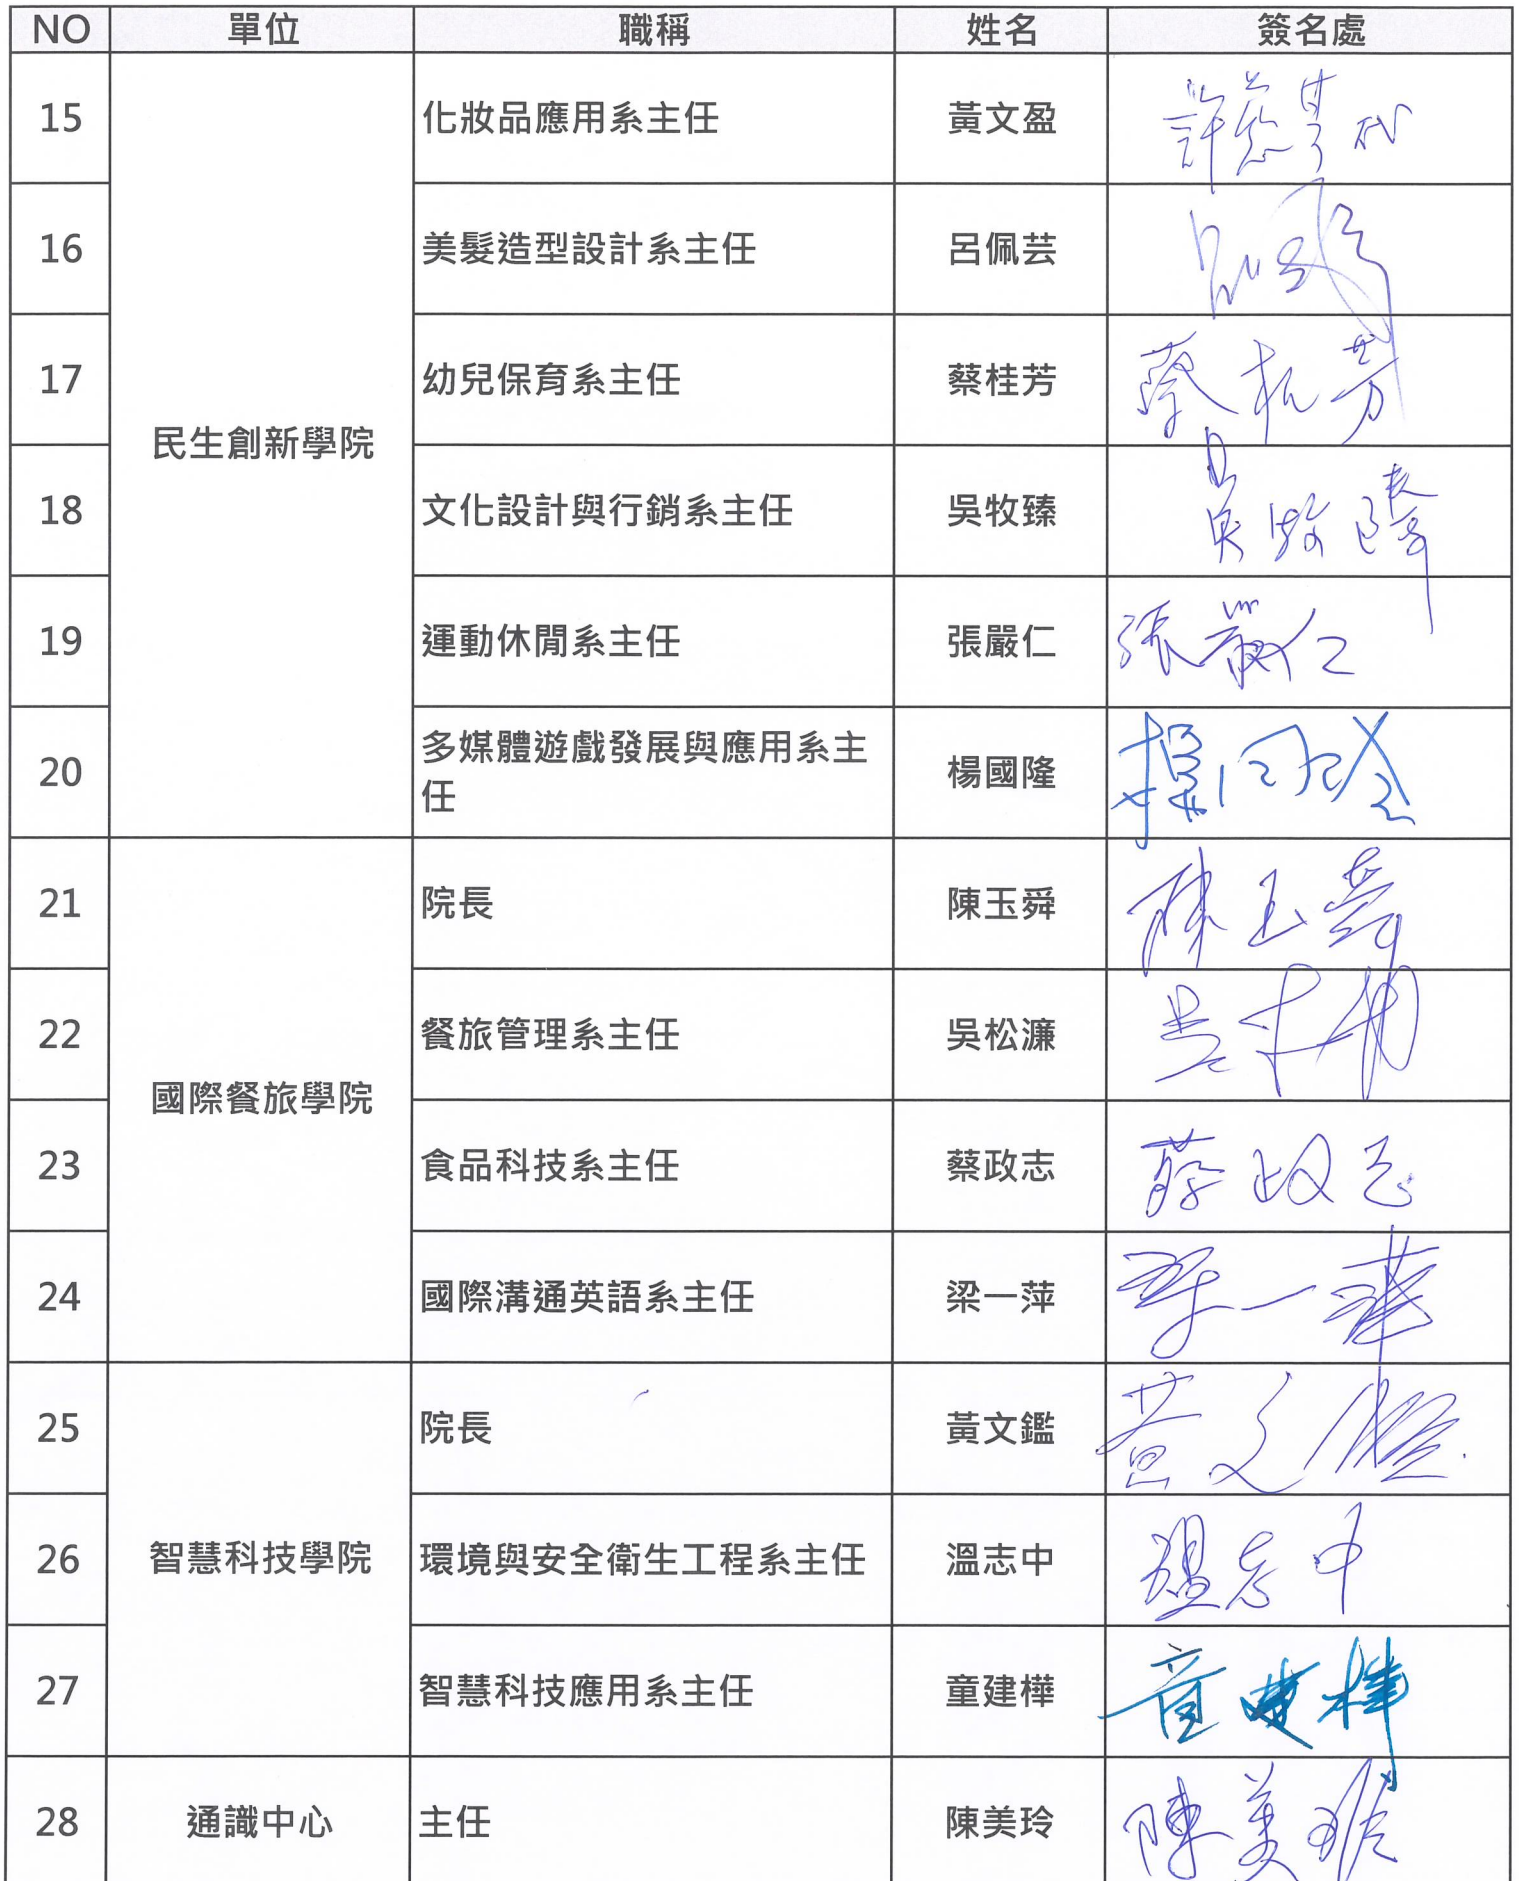 NO 單位 職稱 姓名 簽名處
15 化妝品應用系主任 黃文盈 許慈芳代
16 美髮造型設計系主任 呂佩芸
17 幼兒保育系主任 蔡桂芳 蔡桂芳
民生創新學院
18 文化設計與行銷系主任 吳牧臻 吳牧臻
19 運動休閒系主任 張嚴仁 張嚴仁
20 多媒體遊戲發展與應用系主
任 楊國隆 楊国隆
21 院長 陳玉舜 陳玉舜
22 餐旅管理系主任 吳松濂
國際餐旅學院
23 食品科技系主任 蔡政志 蔡政志
24 國際溝通英語系主任 梁一萍 梁一萍
25 院長 黃文鑑 黃文鑑
26 智慧科技學院 環境與安全衛生工程系主任 溫志中 溫志中
27 智慧科技應用系主任 童建樺 童建樺
28 通識中心 主任 陳美玲 陳美玲